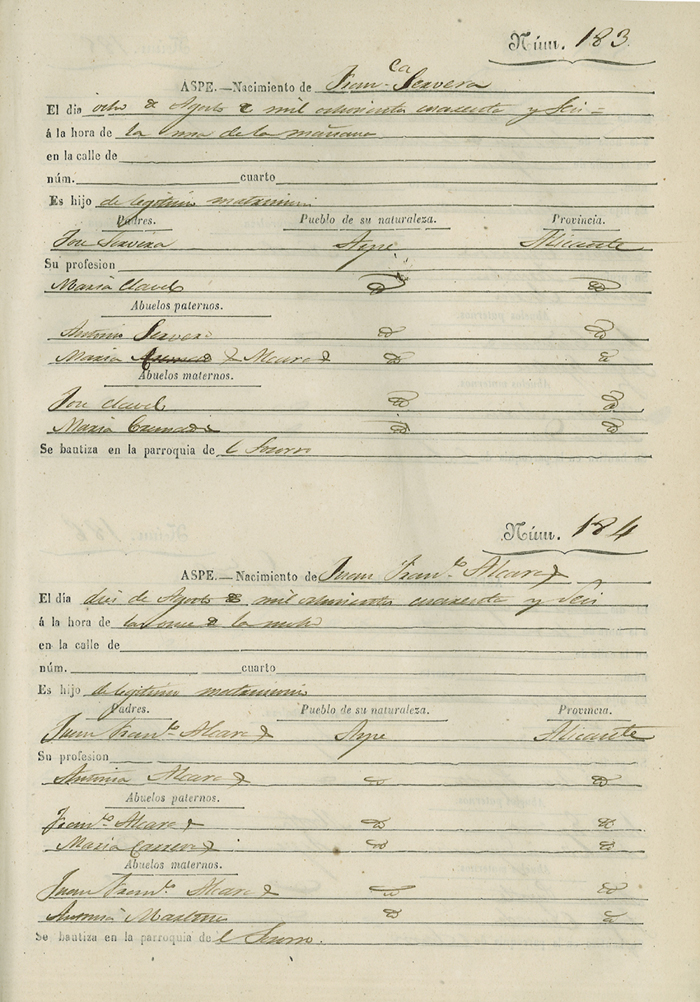 Núm. 183
ASPE.—Nacimiento de Fran.ca Servera
El dia ocho de Agosto de mil ochocientos cuarenta y Seis =
á la hora de la una de la mañana
en la calle de
núm. cuarto
Es hijo de legitimo matrimonio
Padres. Pueblo de su naturaleza. Provincia.
Jose Servera Aspe Alicante
Su profesion
Maria Clavel
Abuelos paternos.
Antonio Servera
Maria Alcarez
Abuelos maternos.
Jose Clavel
Maria
Se bautiza en la parroquia de l Socorro
Núm. 184
ASPE.—Nacimiento de Juan Fran.co Alcarez
El dia dies de Agosto de mil ochocientos cuarenta y seis
á la hora de las once de la noche
en la calle de
núm. cuarto
Es hijo de legitimo matrimonio
Padres. Pueblo de su naturaleza. Provincia.
Juan Fran.co Alcarez Aspe Alicante
Su profesion
Antonia Alcarez
Abuelos paternos.
Fran.co Alcarez
Maria
Abuelos maternos.
Juan Fran.co Alcarez
Antonia Martinez
Se bautiza en la parroquia de l Socorro.